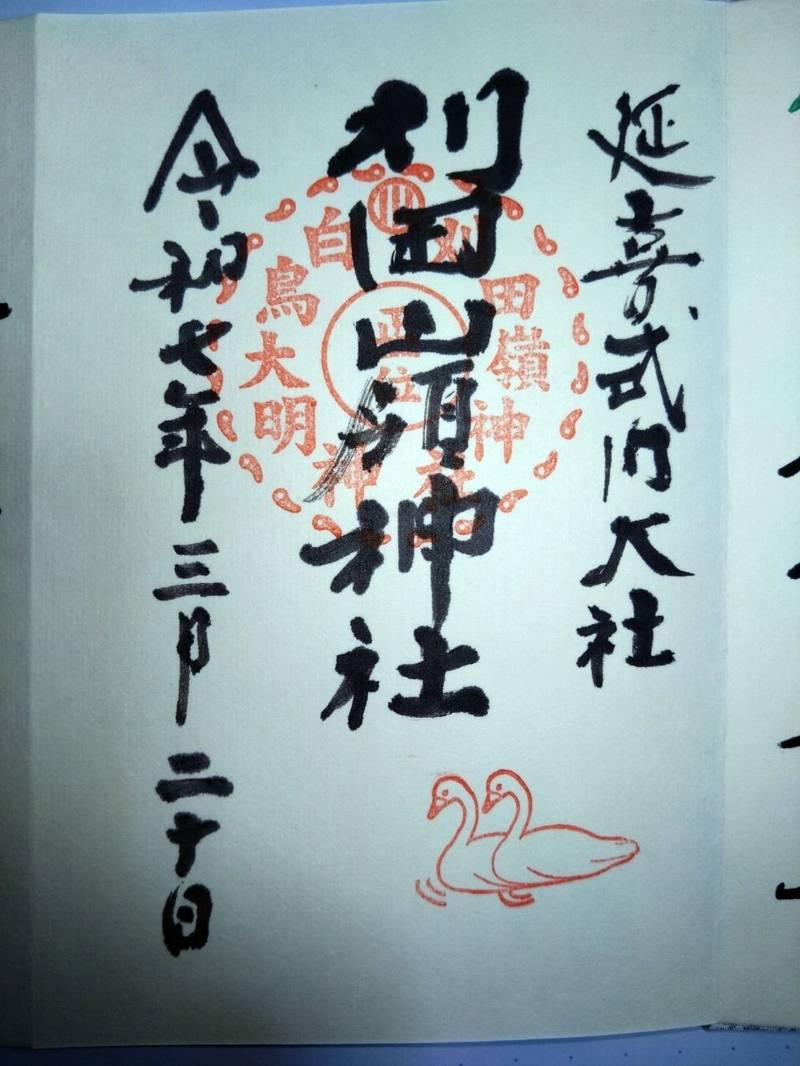 延喜式内大社
刈田嶺神社
令和七年三月二十日
刈田嶺神社
白鳥大明神
正一位